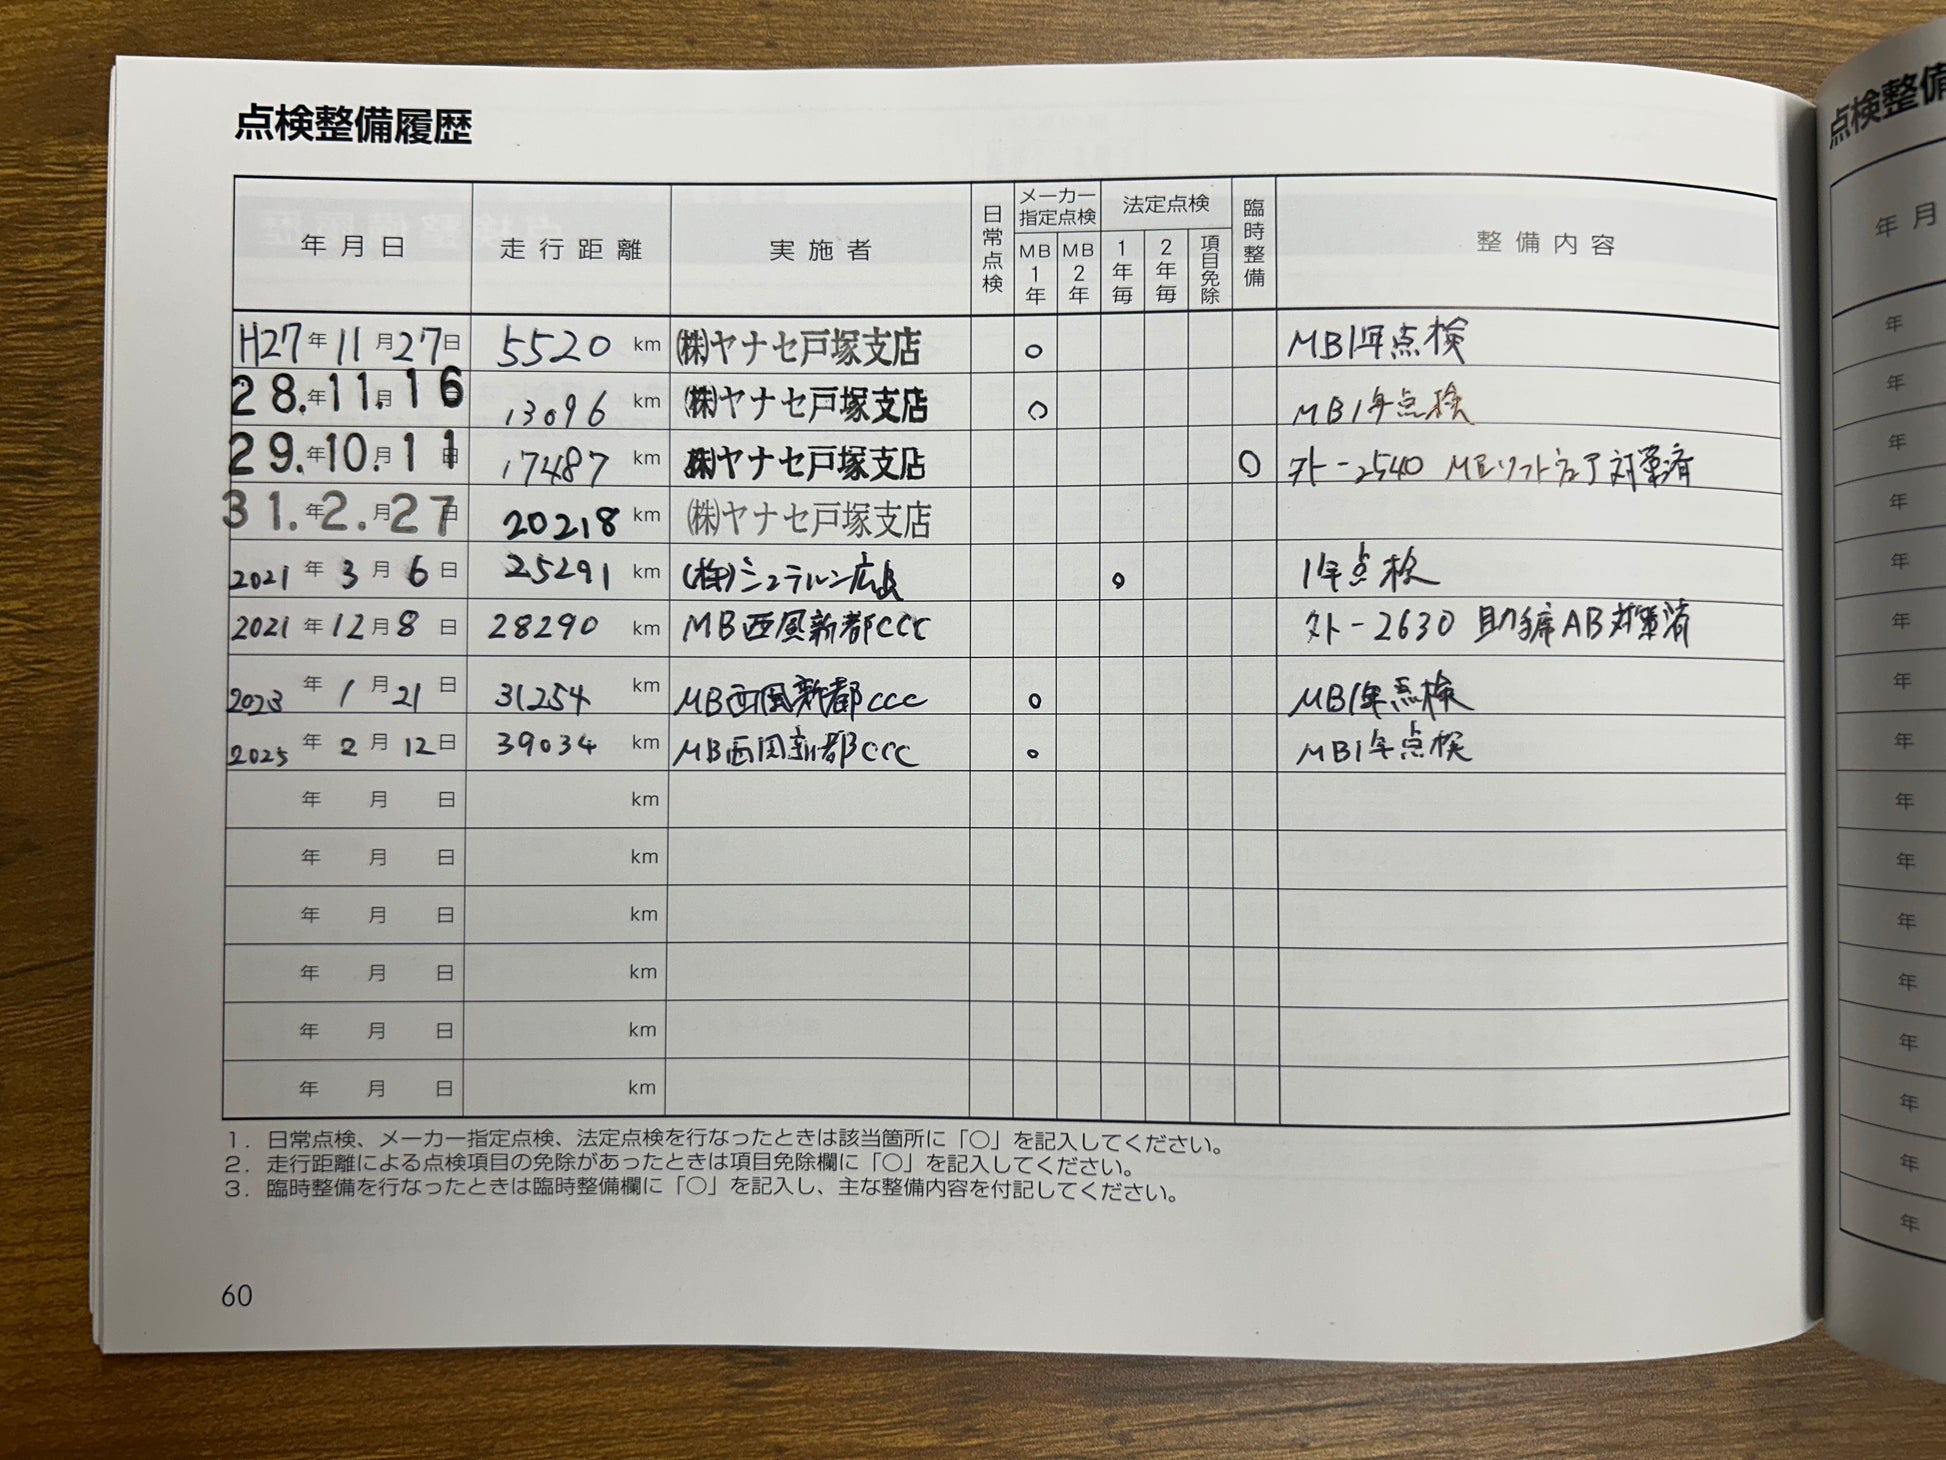 点検整備履歴
年月日 走行距離 実施者 日常点検 メーカー指定点検 MB1年 MB2年 法定点検 1年毎 2年毎 項目免除 臨時整備 整備内容
H27年11月27日 5520 km ㈱ヤナセ戸塚支店 ○ MB1年点検
28.年11.月16日 13096 km ㈱ヤナセ戸塚支店 ○ MB1年点検
29.年10.月11日 17487 km ㈱ヤナセ戸塚支店 ○ 外-2540 MEソフトウェア対策済
31.年2.月27日 20218 km ㈱ヤナセ戸塚支店
2021年3月6日 25291 km (株)シュテルン広島 ○ 1年点検
2021年12月8日 28290 km MB西風新都CCC 外-2630 助手席AB対策済
2023年1月21日 31254 km MB西風新都CCC ○ MB1年点検
2025年2月12日 39034 km MB西風新都CCC ○ MB1年点検
年 月 日 km
年 月 日 km
年 月 日 km
年 月 日 km
年 月 日 km
年 月 日 km
1. 日常点検、メーカー指定点検、法定点検を行なったときは該当箇所に「○」を記入してください。
2. 走行距離による点検項目の免除があったときは項目免除欄に「○」を記入してください。
3. 臨時整備を行なったときは臨時整備欄に「○」を記入し、主な整備内容を付記してください。
60
点検整備
年月
年
年
年
年
年
年
年
年
年
年
年
年
年
年
年
年